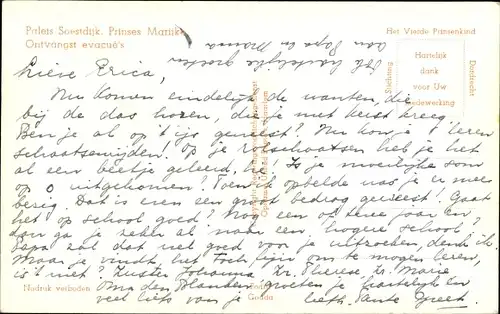 Paleis Soestdijk. Prinses Marijke
Ontvangst evacué's
Het Vierde Prinsenkind
Ook hartelijke groeten
aan Papa en Mama
Stichting
Hartelijk
dank
voor Uw
medewerking
Dordrecht
Lieve Erica,
Nu komen eindelijk de wanten, die
bij de das horen, die je met Kerst kreeg.
Ben je al op 't ijs geweest? Nu kon je 't leren
schaatsenrijden! Op je rolschaatsen heb je het
al een beetje geleerd, hè. Is je moeilijke som
op 0 uitgekomen? Toen ik opbelde was je er mee
bezig. Dat is even een groot bedrag geweest! Gaat
het op school goed? Nog een of twee jaar en
dan ga je zeker al naar een "hogere school"?
Papa zal dat wel goed voor je uitzoeken, denk ik.
Maar je vindt het toch fijn om te mogen leren,
is 't niet? Zuster Johanna, Zr. Therese, Zr. Marie
Oma den Blanken groeten je hartelijk en
veel liefs van je liefh. Tante Greet.
Nadruk verboden
Gouda